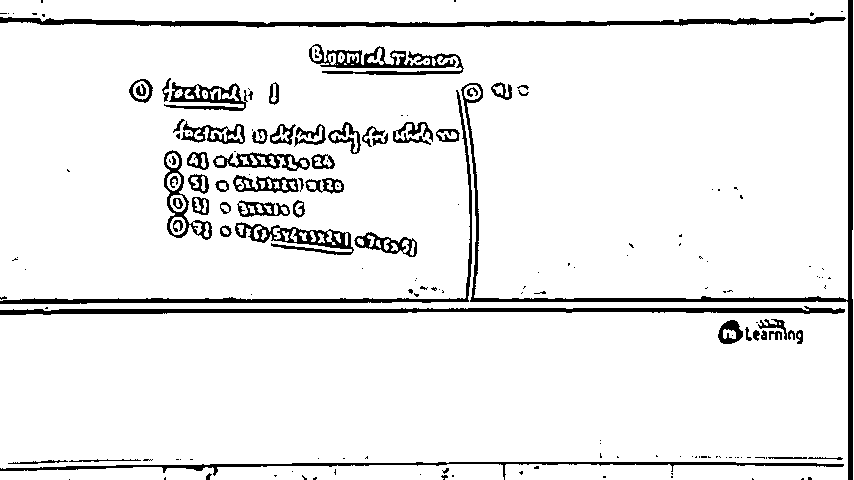 Binomial Theorem
① factorial: !
factorial is defined only for whole no
① 4! = 4x3x2x1 = 24
② 5! = 5x4x3x2x1 = 120
③ 3! = 3x2x1 = 6
④ 7! = 7x6x5x4x3x2x1 = 7x6x5!
Learning